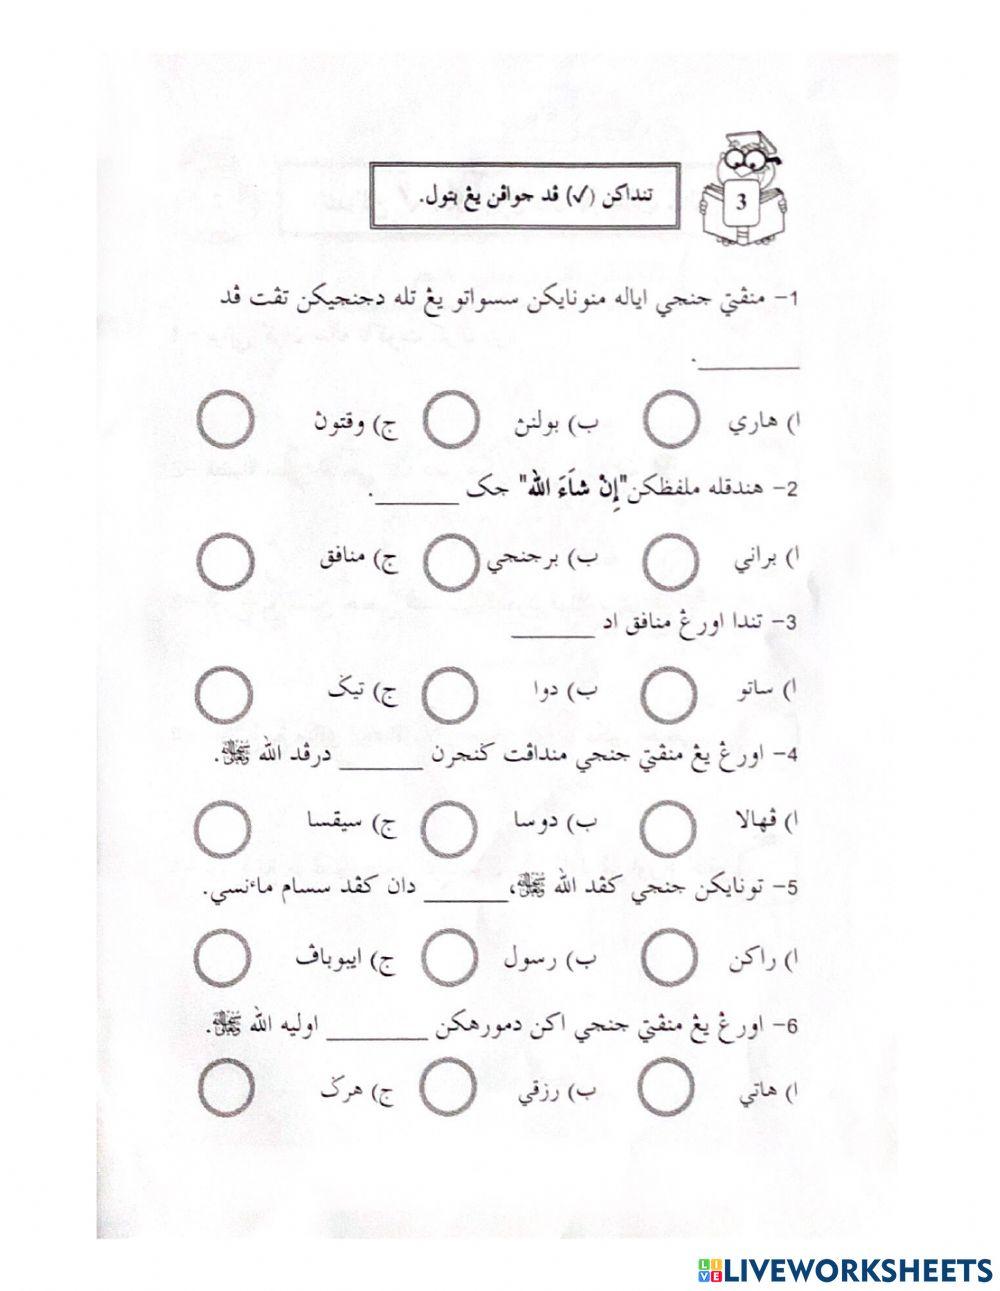 3
تنداكن (✓) ڤد جواڤن يڠ بتول.
1- منڤتي جنجي اياله منونايكن سسواتو يڠ تله دجنجيكن تڤت ڤد
________.
ا) هاري ب) بولنڽ ج) وقتوڽ
2- هندقله ملفظكن "إِنْ شَاءَ الله" جک ________.
ا) براني ب) برجنجي ج) منافق
3- تندا اورڠ منافق اد ________
ا) ساتو ب) دوا ج) تيݢ
4- اورڠ يڠ منڤتي جنجي منداڤت ݢنجرن ________ درڤد الله ﷻ.
ا) ڤهالا ب) دوسا ج) سيقسا
5- تونايكن جنجي كڤد الله ﷻ، ________ دان كڤد سسام ماءنسي.
ا) راكن ب) رسول ج) ايبوباڤ
6- اورڠ يڠ منڤتي جنجي اكن دمورهكن ________ اوليه الله ﷻ.
ا) هاتي ب) رزقي ج) هرݢ
LIVEWORKSHEETS